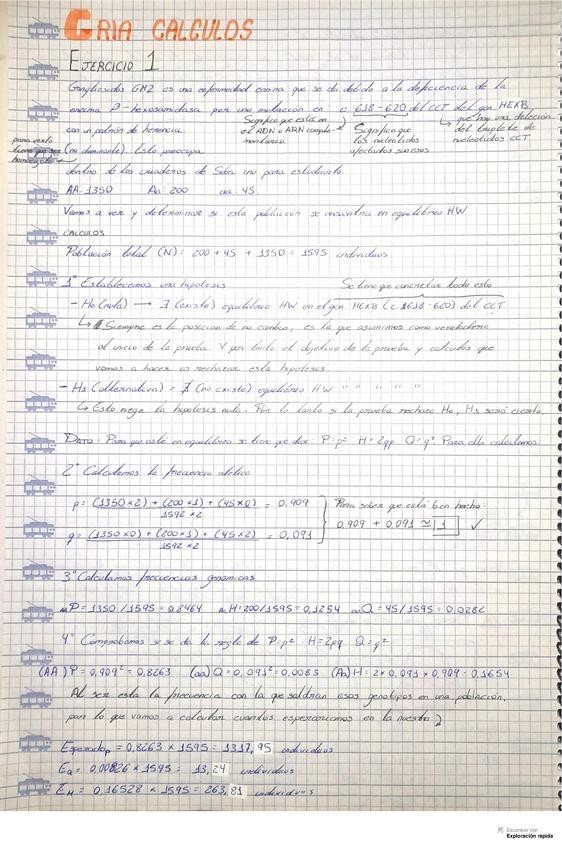 CRIA CALCULOS
EJERCICIO 1
Gangliosidos GM2 es una enfermedad canina que se da debido a la deficiencia de la
enzima β-hexosamidasa por una mutacion en c 618-620 del CCT del gen HEXB
con un patrón de herencia
Significa que está en el ADN o ARN complementario.
Significa que los nucleotidos afectados son esos
que hay una deleción del triplete de nucleotidos CCT
para verlo tiene que ser homocigoto
(no dominante). Esto preocupa
dentro de los criaderos de Siba inu para estudiarlo
AA: 1350 Aa: 200 aa: 45
Vamos a ver y determinar si esta población se encuentra en equilibrio HW
CALCULOS
Población total (N) = 200 + 45 + 1350 = 1595 individuos
1º Establecemos una hipotesis
Se tiene que concretar todo esto
- Ho (nula) → ∃ (existe) equilibrio HW en el gen HEXB (c 1618-620) del CCT
↳ Siempre es la posicion de no cambio, es la que asumimos como verdadera
al inicio de la prueba. Y por tanto el objetivo de la prueba y calculos que
vamos a hacer es rechazar esta hipotesis
- H1 (alternativa) = ∄ (no existe) equilibrio HW " " " " "
↳ Esto niega la hipotesis nula. Por lo tanto si la prueba rechaza Ho, H1 será cierta.
DATO: Para que este en equilibrio se tiene que dar: P=p² H=2pq Q=q². Para ello calculamos
2º Calculamos la frecuencia alelica
p = (1350x2) + (200x1) + (45x0) / 1592 x2 = 0,909
q = (1350x0) + (200x1) + (45x2) / 1592 x2 = 0,091
Para saber que está bien hecho:
0,909 + 0,091 ≅ 1 ✓
3º Calculamos frecuencias genomicas
AA P = 1350 / 1595 = 0,8464 Aa H = 200/1595 = 0,1254 aa Q = 45 / 1595 = 0,0282
4º Comprobamos si se da la regla de P=p² H=2pq Q=q²
(AA) P = 0,909² = 0,8263 (aa) Q = 0,091² = 0,0083 (Aa) H = 2 x 0,091 x 0,909 = 0,1654
Al ser esta la frecuencia con la que saldrian esos genotipos en una población,
por lo que vamos a calcular cuantos esperariamos en la nuestra
Esperado p = 0,8263 x 1595 = 1317,95 individuos
EQ = 0,00826 x 1595 = 13,24 individuos
EH = 0,16528 x 1595 = 263,81 individuos
Escanear con
Exploración rápida